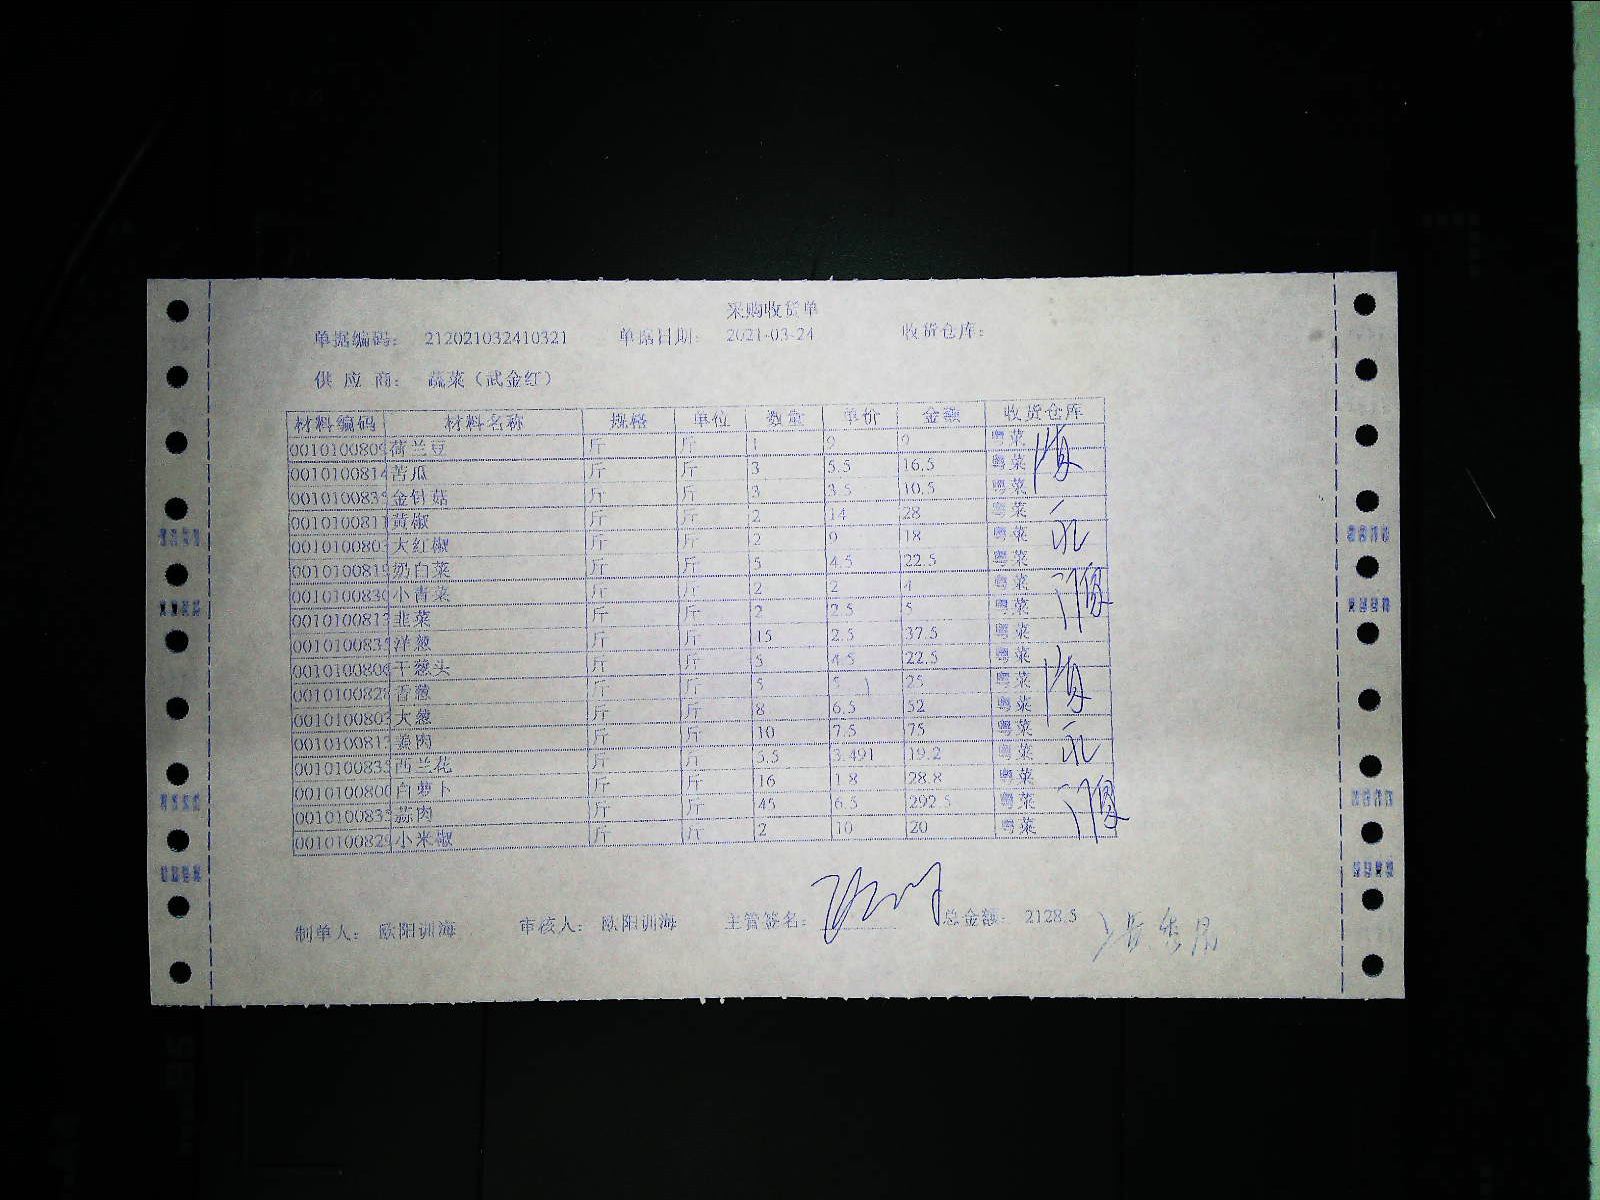 采购收货单
单据编码: 212021032410321 单据日期: 2021-03-24 收货仓库:
供 应 商: 蔬菜（武金红）
材料编码 材料名称 规格 单位 数量 单价 金额 收货仓库
0010100809 荷兰豆 斤 斤 1 9 9 粤菜
0010100814 苦瓜 斤 斤 3 5.5 16.5 粤菜
001010083 金针菇 斤 斤 3 3.5 10.5 粤菜
0010100811 黄椒 斤 斤 2 14 28 粤菜
001010080 大红椒 斤 斤 2 9 18 粤菜
0010100819 奶白菜 斤 斤 5 4.5 22.5 粤菜
0010100830 小青菜 斤 斤 2 2 4 粤菜
001010081 韭菜 斤 斤 2 2.5 5 粤菜
001010083 洋葱 斤 斤 15 2.5 37.5 粤菜
0010100806 干葱头 斤 斤 5 4.5 22.5 粤菜
0010100828 香葱 斤 斤 5 5 25 粤菜
0010100803 大葱 斤 斤 8 6.5 52 粤菜
001010081 姜肉 斤 斤 10 7.5 75 粤菜
001010083 西兰花 斤 斤 5.5 3.491 19.2 粤菜
0010100800 白萝卜 斤 斤 16 1.8 28.8 粤菜
001010083 蒜肉 斤 斤 45 6.5 292.5 粤菜
0010100829 小米椒 斤 斤 2 10 20 粤菜
制单人: 欧阳训海 审核人: 欧阳训海 主管签名: 总金额: 2128.5